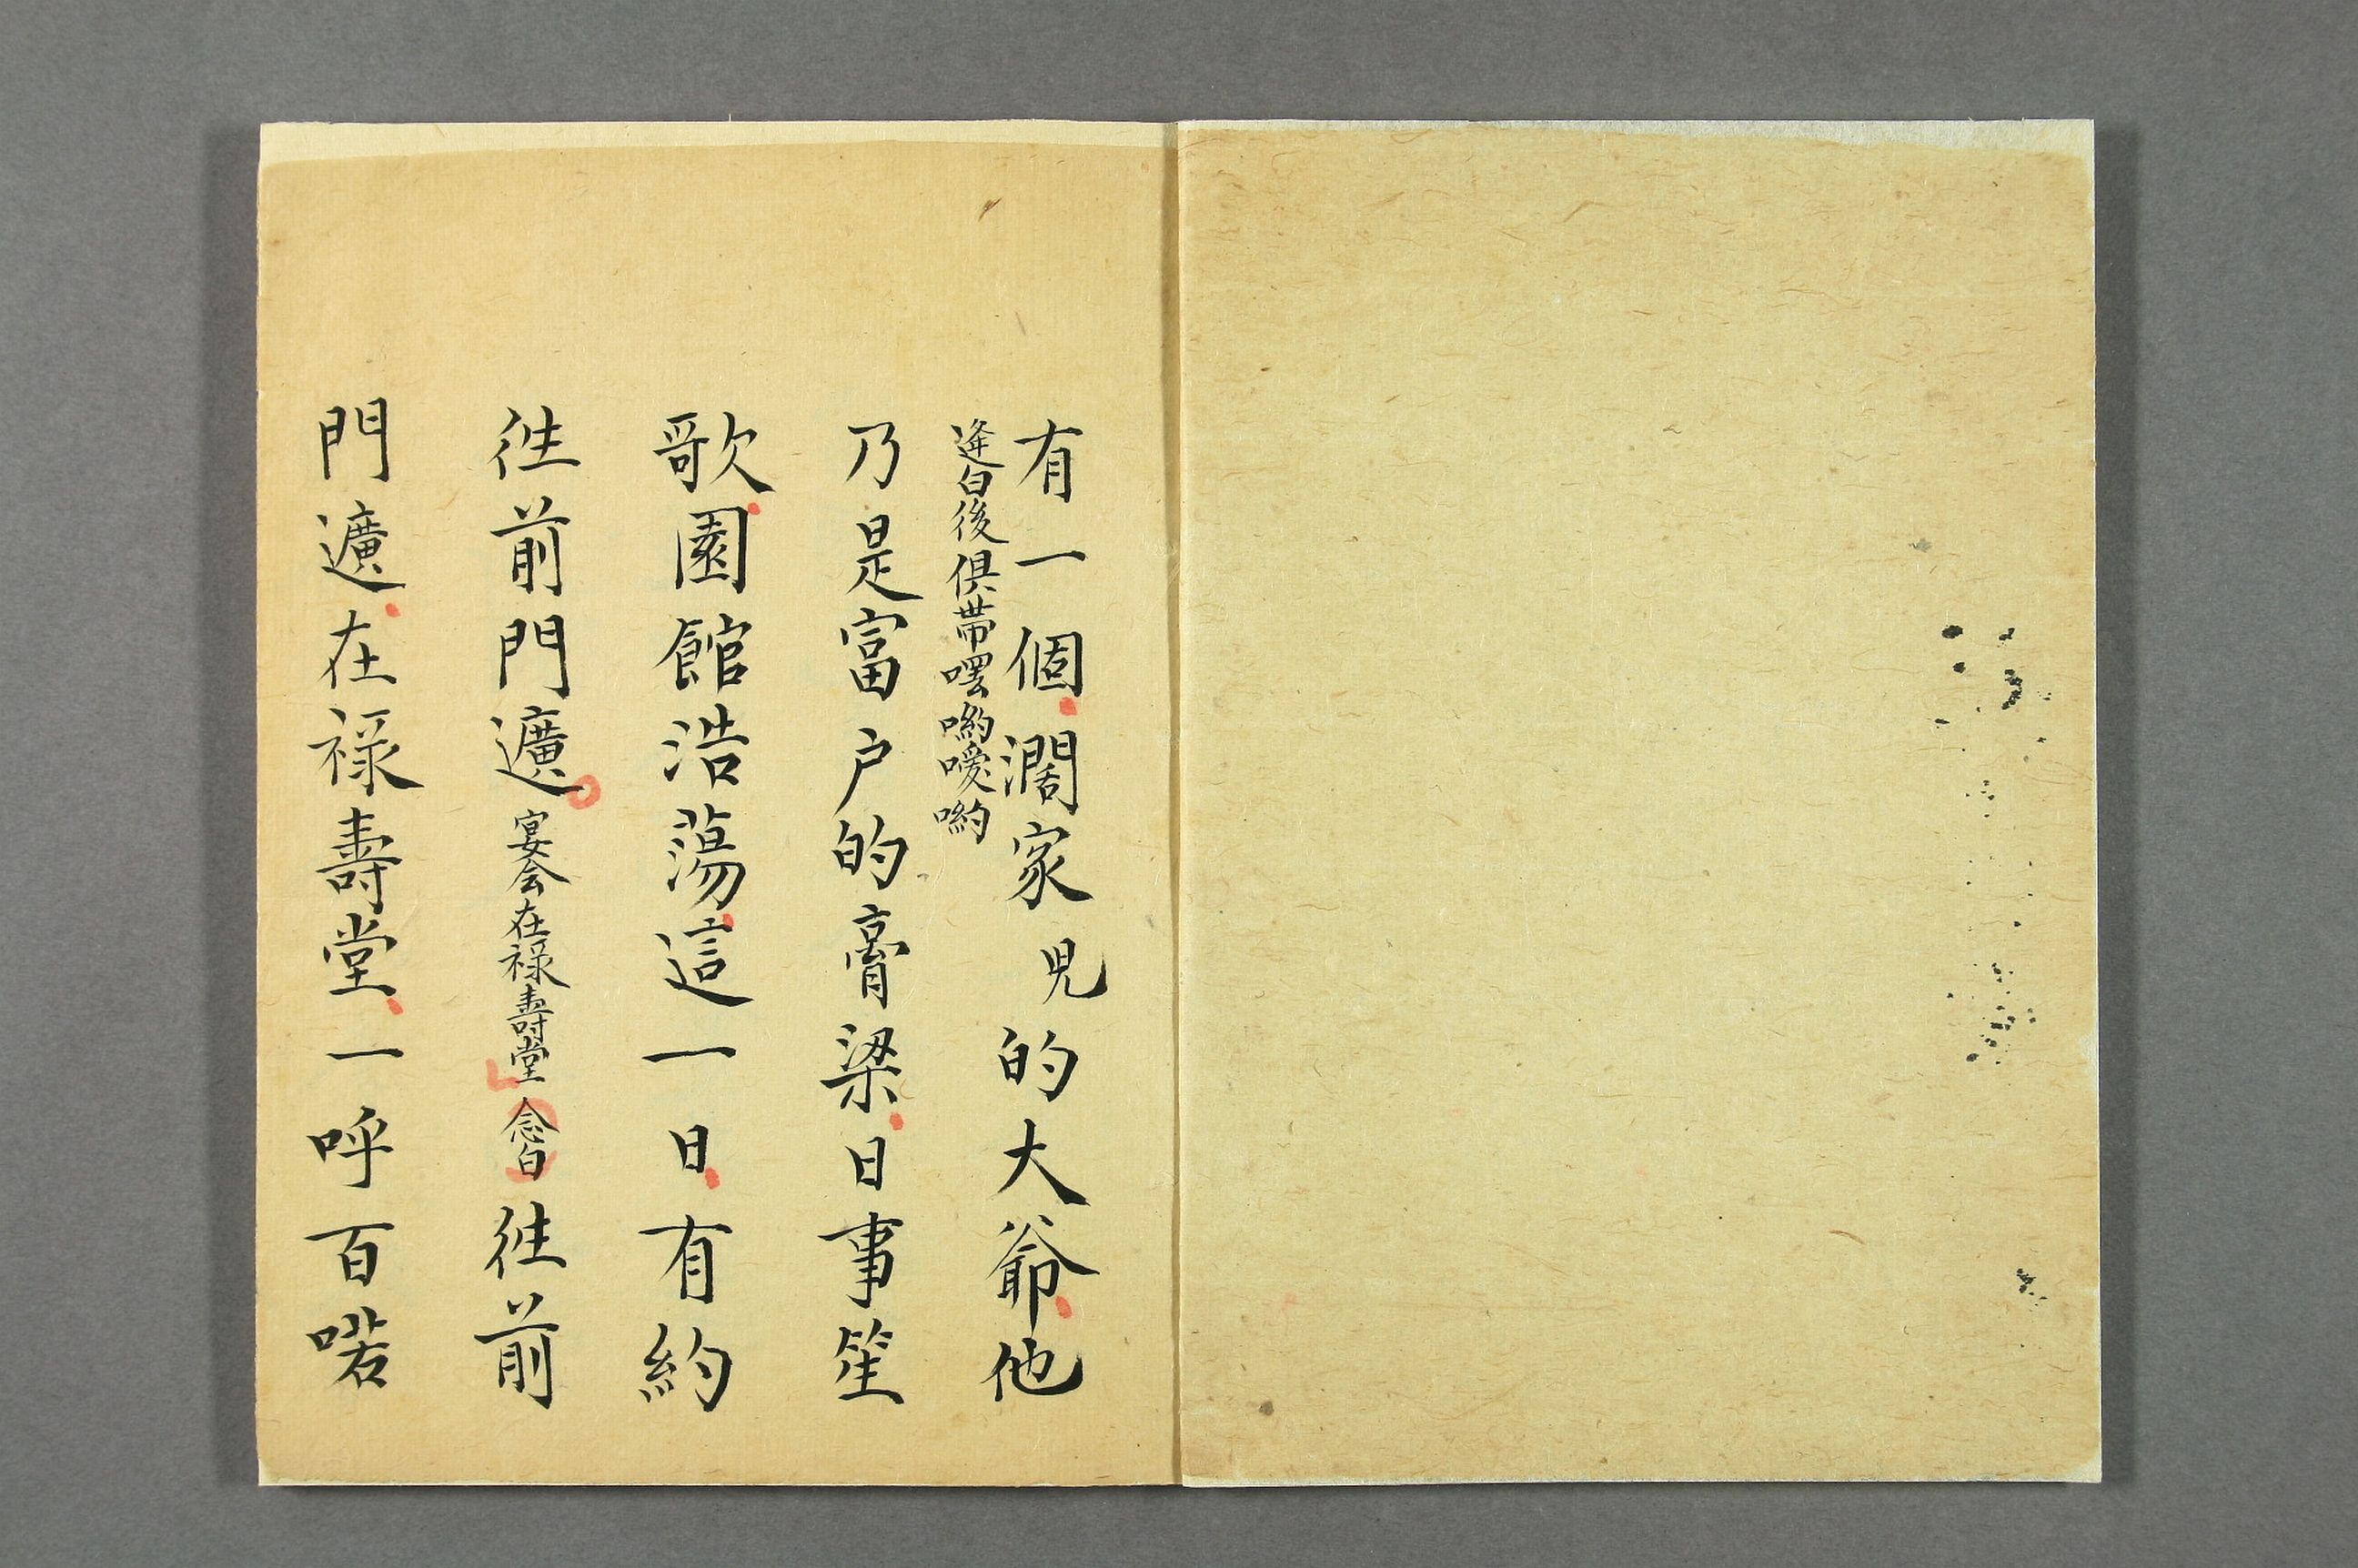 有一個濶家児的大爺他
逢白後俱带嘿喲噯喲
乃是富户的膏梁日事笙
歌園館浩蕩這一日有約
徃前門𨘢宴会在禄壽堂念白徃前
門𨘢在禄壽堂一呼百喏